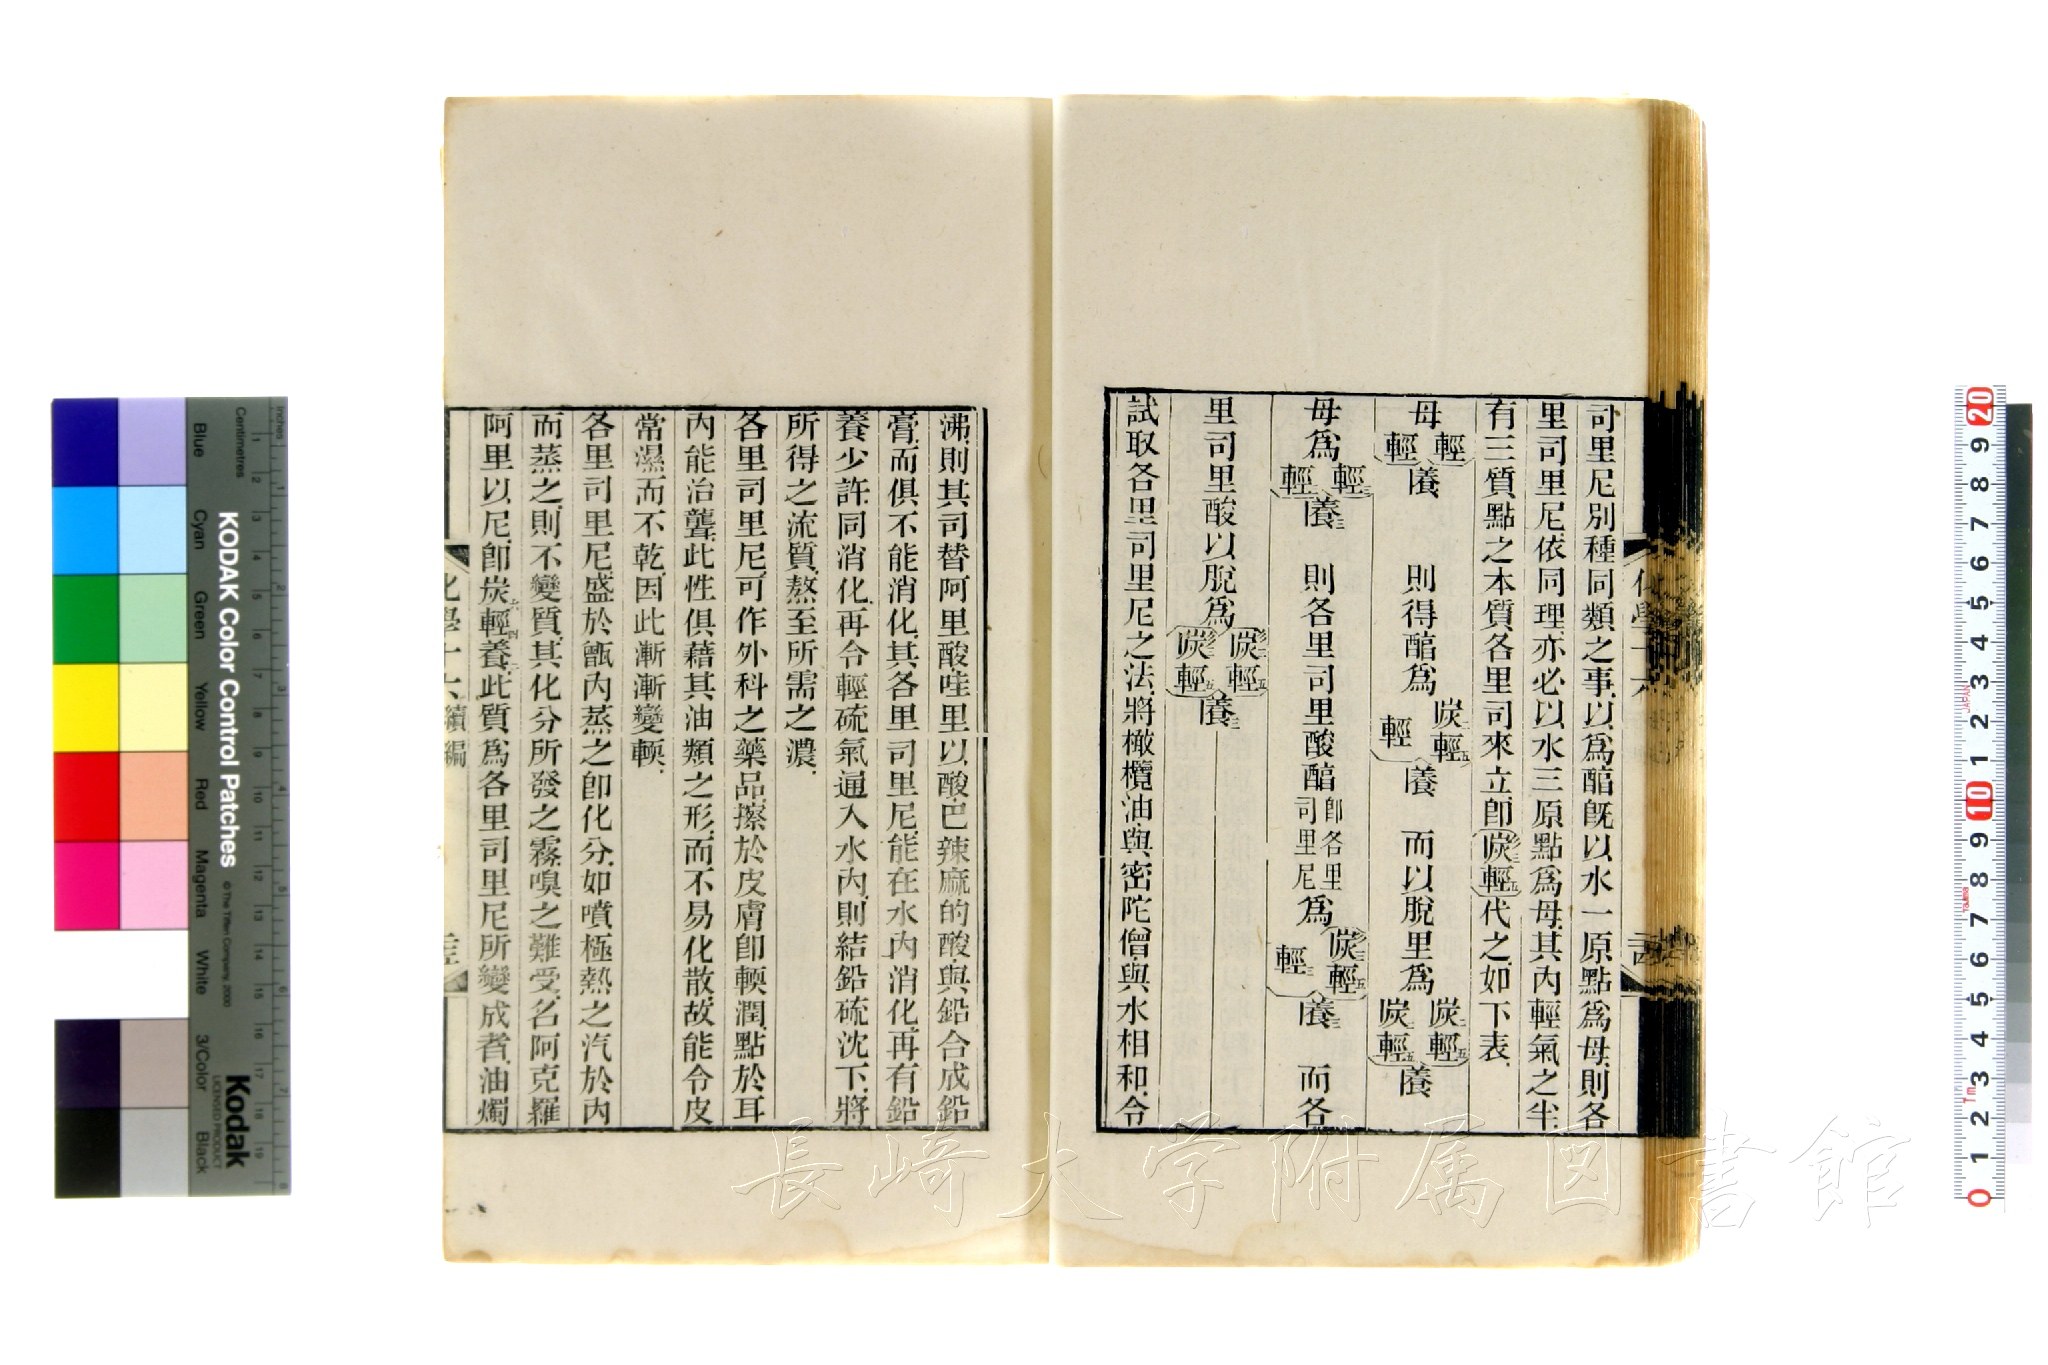 司里尼別種同類之事以爲醕旣以水一原點爲母則各
里司里尼依同理亦必以水三原點爲母其內輕氣之半
有三質點之本質各里司來立卽炭輕代之如下表
母輕輕養 則得醕爲炭輕輕養 而以脫里爲炭輕炭輕養
母爲輕輕養 則各里司里酸醕卽各里司里尼爲炭輕輕養 而各
里司里酸以脫爲炭輕炭輕養
試取各里司里尼之法將橄欖油與密陀僧與水相和令
沸則其司替阿里酸哇里以酸巴辣麻的酸與鉛合成鉛
膏而俱不能消化其各里司里尼能在水內消化再有鉛
養少許同消化再令輕硫氣通入水內則結鉛硫沈下將
所得之流質熬至所需之濃
各里司里尼可作外科之藥品擦於皮膚卽輭潤點於耳
內能治聾此性俱藉其油類之形而不易化散故能令皮
常濕而不乾因此漸漸變輭
各里司里尼盛於甑內蒸之卽化分如噴極熱之汽於內
而蒸之則不變質其化分所發之霧嗅之難受名阿克羅
阿里以尼卽炭輕養此質爲各里司里尼所變成者油燭
化學十六續編
長崎大学附属図書館
KODAK Color Control Patches
© The Tiffen Company, 2000
Kodak
LICENSED PRODUCT
Inches
Centimetres
Blue
Cyan
Green
Yellow
Red
Magenta
White
3/Color
Black